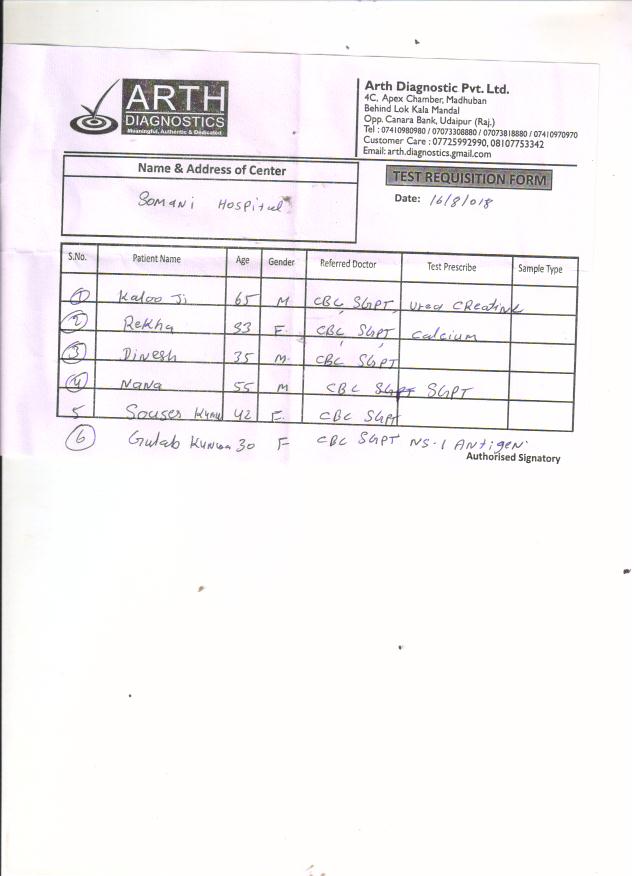 ARTH
DIAGNOSTICS
Meaningful, Authentic & Dedicated
Arth Diagnostic Pvt. Ltd.
4C, Apex Chamber, Madhuban
Behind Lok Kala Mandal
Opp. Canara Bank, Udaipur (Raj.)
Tel : 07410980980 / 07073308880 / 07073818880 / 07410970970
Customer Care : 07725992990, 08107753342
Email: arth.diagnostics.gmail.com
Name & Address of Center
SOMANI HOSPITAL
TEST REQUISITION FORM
Date: 16/8/018
S.No. Patient Name Age Gender Referred Doctor Test Prescribe Sample Type
1 Kaloo Ji 65 M CBC, SGPT, Urea CReatine
2 Rekha 33 F CBC, SGPT, Calcium
3 Dinesh 35 M CBC SGPT
4 Nana 55 M CBC SGPT
5 42 F CBC SGPT
6 Gulab 30 F CBC SGPT NS-1 Antigen
Authorised Signatory